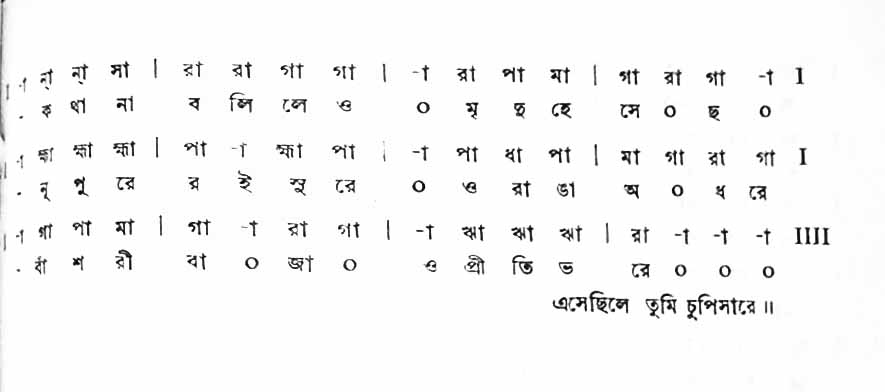 -া ন্‌া ন্‌া সা | রা রা গা গা | -া রা পা মা | গা রা গা -া I
• ক থা না ব লি লে ও ০ মৃ দু হে সে ০ ছ ০
-া হ্মা হ্মা হ্মা | পা -া হ্মা পা | -া পা ধা পা | মা গা রা গা I
• নূ পু রে র ই সু রে ০ ও রা ঙা অ ০ ধ রে
-া গা পা মা | গা -া রা গা | -া ঋা ঋা ঋা | রা -া -া -া IIII
• বাঁ শ রী বা ০ জা ০ ও প্রী তি ভ রে ০ ০ ০
এসেছিলে তুমি চুপিসারে॥